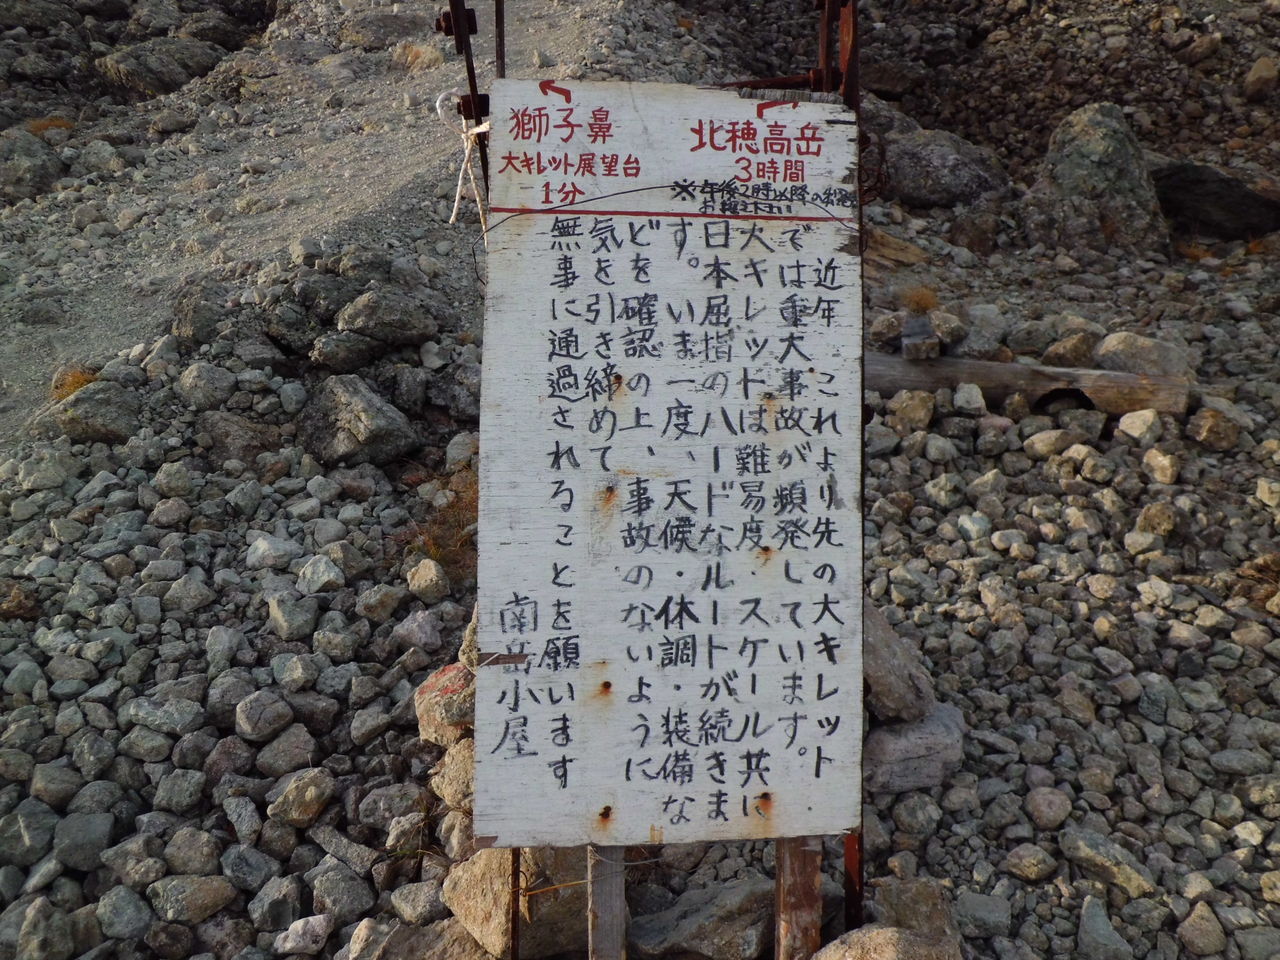 獅子鼻
大キレット展望台
1分
北穂高岳
3時間
※午後2時以降の出発
お控え下さい
近年、これより先の大キレット
では重大事故が頻発しています。
大キレットは難易度・スケール共に
日本屈指のハードなルートが続きま
す。いま一度、天候・休調・装備な
どを確認の上、事故のないように
気を引き締めて
無事に通過されることを願います
南岳小屋